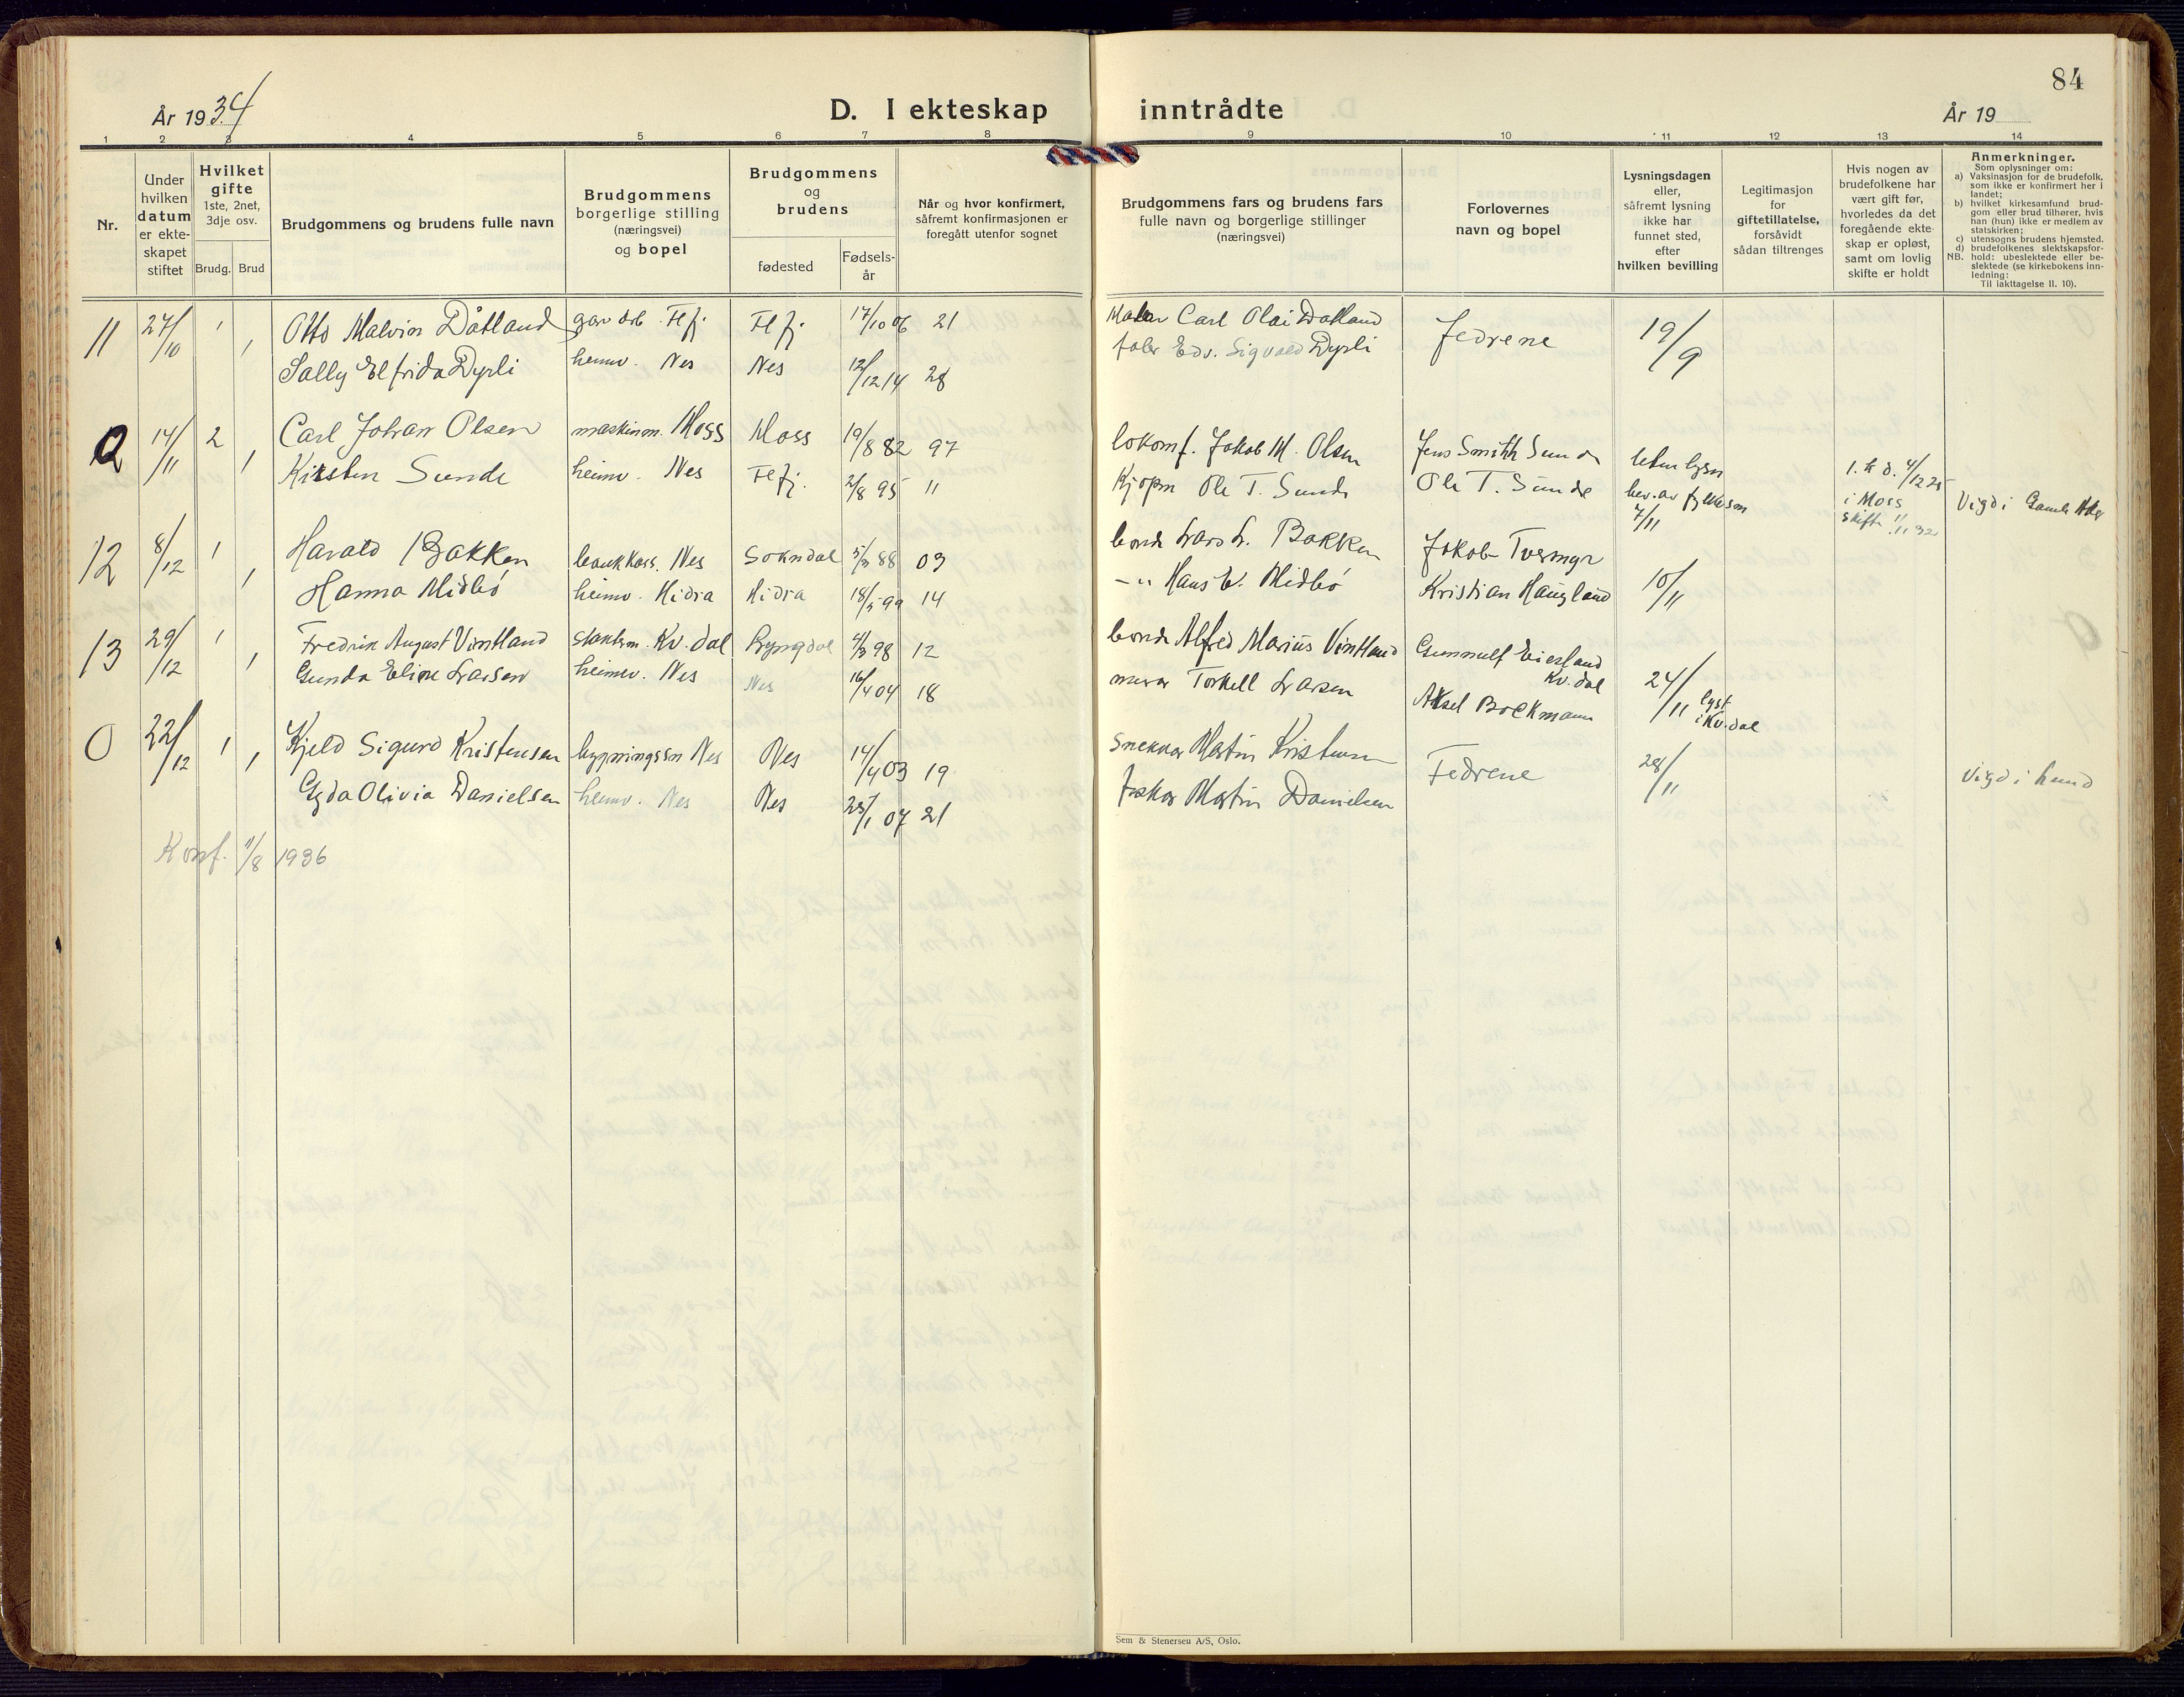 84
År 1934
D. I ekteskap inntrådte
År 19
1 2 3 4 5 6 7 8 9 10 11 12 13 14
Nr.
Under
hvilken
datum
er ekte-
skapet
stiftet
Hvilket
gifte
1ste, 2net,
3dje osv.
Brudg. Brud
Brudgommens og brudens fulle navn
Brudgommens
borgerlige stilling
(næringsvei)
og bopel
Brudgommens
og
brudens
fødested
Fødsels-
år
Når og hvor konfirmert,
såfremt konfirmasjonen er
foregått utenfor sognet
Brudgommens fars og brudens fars
fulle navn og borgerlige stillinger
(næringsvei)
Forlovernes
navn og bopel
Lysningsdagen
eller,
såfremt lysning
ikke har
funnet sted,
efter
hvilken bevilling
Legitimasjon
for
giftetillatelse,
forsåvidt
sådan tiltrenges
Hvis nogen av
brudefolkene har
vært gift før,
hvorledes da det
foregående ekte-
skap er opløst,
samt om lovlig
skifte er holdt
Anmerkninger.
Som oplysninger om:
a) Vaksinasjon for de brudefolk,
som ikke er konfirmert her i
landet;
b) hvilket kirkesamfund brud-
gom eller brud tilhører, hvis
han (hun) ikke er medlem av
statskirken;
c) utensogns brudens hjemsted.
d) brudefolkenes slektskapsfor-
NB. hold: ubeslektede eller be-
slektede (se kirkebokens inn-
ledning:
Til iakttagelse II. 10).
11 27/10 1 Otto Malvin Dåtland gårdarb. Flfj. Flfj. 17/10 06 21 Maler Carl Olai Dåtland Fedrene 19/9
1 Sally Elfrida Dyrli heimv. Nes Nes 12/12 14 28 Edv. Sigvald Dyrli
0 14/11 2 Carl Johan Olsen maskinm. Moss Moss 19/8 82 97 lokomf. Jakob M. Olsen Jens Smith Sunde uten lysn 1. k d. 4/12 25
1 Kirsten Sunde heimv. Nes Flfj. 2/8 95 11 Kjøpm Ole T. Sunde Ole T. Sunde bev. av fylkesm 7/11 i Moss skifte 1/11 32 Vigd i Gamle Aker
12 8/12 1 Harald Bakken bankkass. Nes Sokndal 5/3 88 03 bonde Lars L. Bakken Jakob Tvermyr 10/11
1 Hanna Midbø heimv. Hidra Hidra 18/5 99 14 –"– Hans E. Midbø Kristian Haugland
13 29/12 1 Fredrik August Vintland Kv.dal Lyngdal 4/3 98 12 bonde Alfred Marius Vintland Gunnulf Eiesland Kv.dal 24/11 lyst i Kv.dal
1 Gunda Eline Larsen heimv. Nes Nes 16/4 04 18 murer Torkell Larsen Aksel Bockmann
0 22/12 1 Kjeld Sigurd Kristensen bygningssn Nes Nes 14/4 03 19 Snekker Martin Kristensen Fedrene 28/11 Vigd i Lund
1 Gyda Olivia Danielsen heimv. Nes Nes 25/1 07 21 fisker Martin Danielsen
Konf. 11/8 1936
Sem & Stenersen A/S, Oslo.